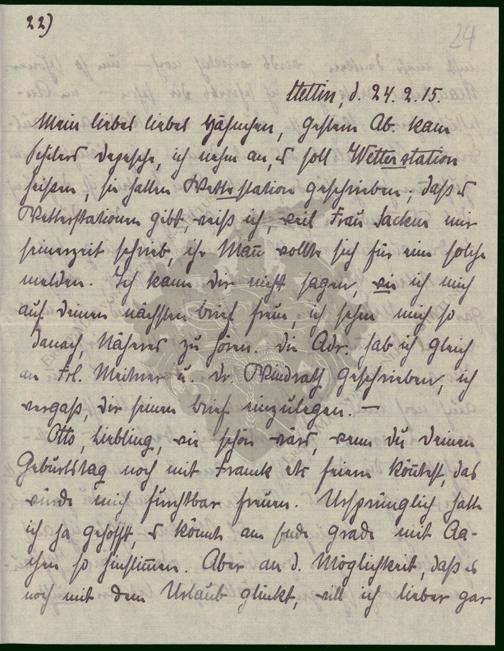 22)
24
Stettin, d. 24.2.15.
Mein liebes liebes Hähnchen, gestern Ab. kam
Depesche, ich nehm an, es soll Wetterstation
heißen, sie hatten Wettestation geschrieben; daß es
Wetterstationen gibt, weiß ich, weil Frau Sackur mir
seinerzeit schrieb, ihr Mann wollte sich für eine solche
melden. Ich kann dir nicht sagen, wie ich mich
auf deinen nächsten Brief freu, ich sehn mich so
danach, Näheres zu hören. Die Adr. hab ich gleich
an Frl. Meitner u. Dr. Windrath geschrieben, ich
vergaß, dir seinen Brief einzulegen. —
Otto, Liebling, wie schön wärs, wenn du deinen
Geburtstag noch mit Franck etc feiern könntest, das
würde mich furchtbar freuen. Ursprünglich hatte
ich ja gehofft, es könnte am Ende grade mit Aa-
chen so hinstimmen. Aber an d. Möglichkeit, daß es
noch mit dem Urlaub glückt, will ich lieber gar